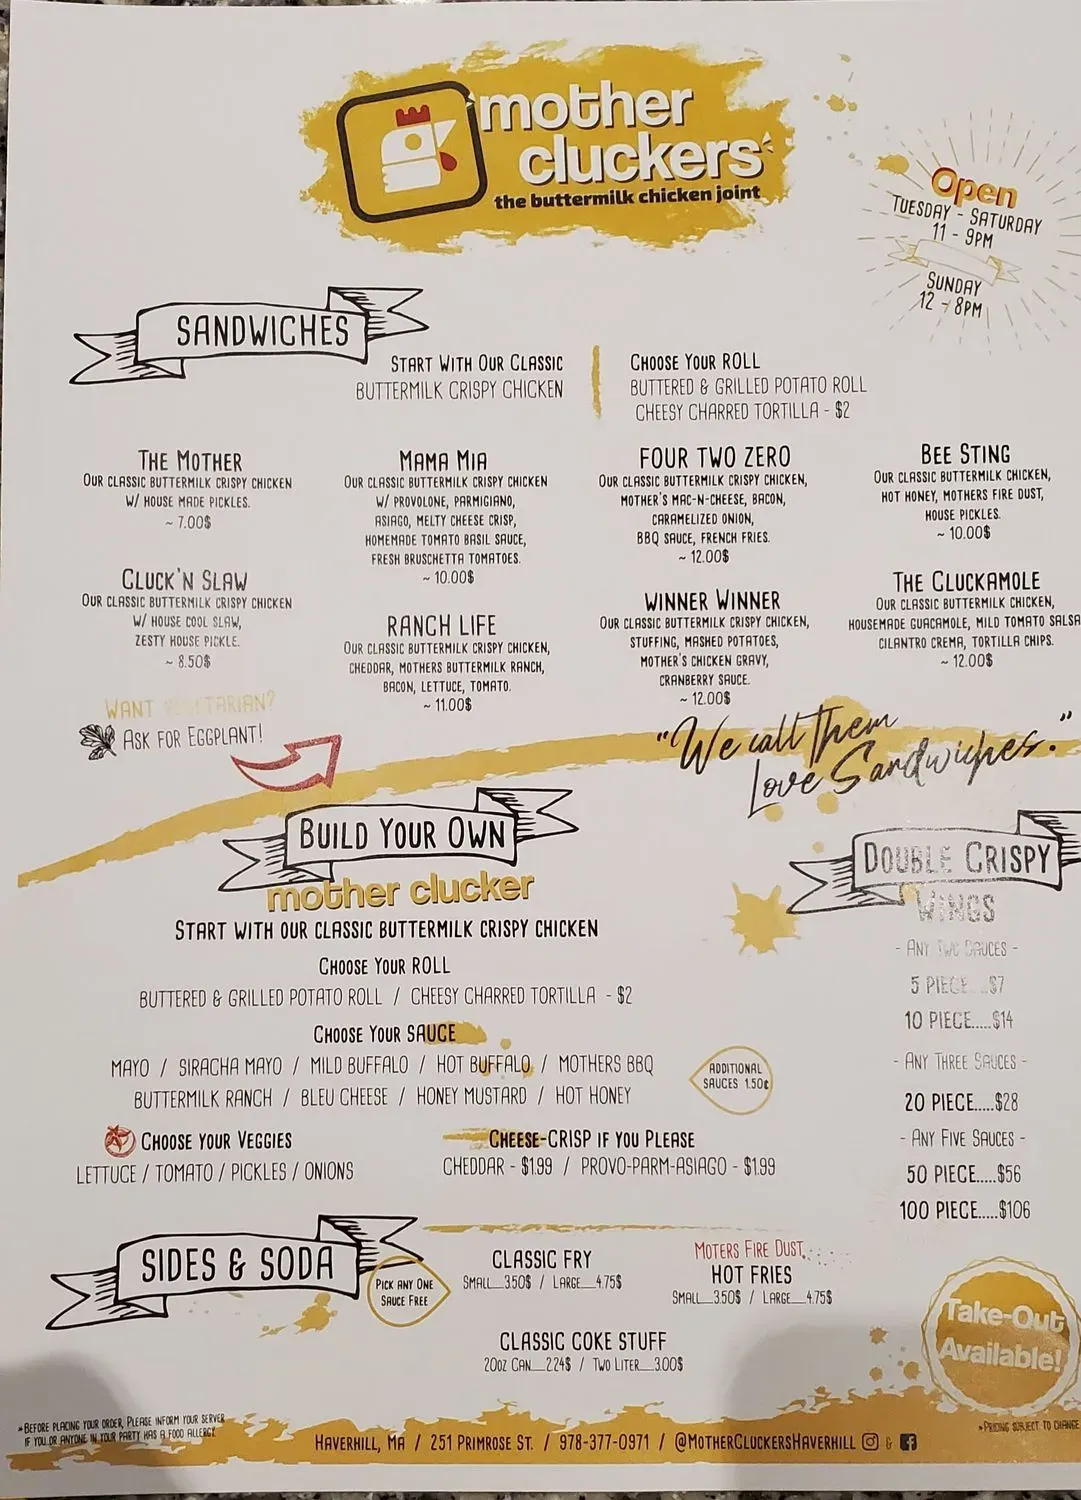 mother
cluckers
the buttermilk chicken joint
Open
TUESDAY - SATURDAY
11 - 9PM
SUNDAY
12 - 8PM
SANDWICHES
START WITH OUR CLASSIC
BUTTERMILK CRISPY CHICKEN
CHOOSE YOUR ROLL
BUTTERED & GRILLED POTATO ROLL
CHEESY CHARRED TORTILLA - $2
THE MOTHER
OUR CLASSIC BUTTERMILK CRISPY CHICKEN
W/ HOUSE MADE PICKLES.
~ 7.00$
CLUCK'N SLAW
OUR CLASSIC BUTTERMILK CRISPY CHICKEN
W/ HOUSE COOL SLAW,
ZESTY HOUSE PICKLE.
~ 8.50$
MAMA MIA
OUR CLASSIC BUTTERMILK CRISPY CHICKEN
W/ PROVOLONE, PARMIGIANO,
ASIAGO, MELTY CHEESE CRISP,
HOMEMADE TOMATO BASIL SAUCE,
FRESH BRUSCHETTA TOMATOES.
~ 10.00$
RANCH LIFE
OUR CLASSIC BUTTERMILK CRISPY CHICKEN,
CHEDDAR, MOTHERS BUTTERMILK RANCH,
BACON, LETTUCE, TOMATO.
~ 11.00$
FOUR TWO ZERO
OUR CLASSIC BUTTERMILK CRISPY CHICKEN,
MOTHER'S MAC-N-CHEESE, BACON,
CARAMELIZED ONION,
BBQ SAUCE, FRENCH FRIES.
~ 12.00$
WINNER WINNER
OUR CLASSIC BUTTERMILK CRISPY CHICKEN,
STUFFING, MASHED POTATOES,
MOTHER'S CHICKEN GRAVY,
CRANBERRY SAUCE.
~ 12.00$
BEE STING
OUR CLASSIC BUTTERMILK CHICKEN,
HOT HONEY, MOTHERS FIRE DUST,
HOUSE PICKLES.
~ 10.00$
THE CLUCKAMOLE
OUR CLASSIC BUTTERMILK CHICKEN,
HOUSEMADE GUACAMOLE, MILD TOMATO SALSA
CILANTRO CREMA, TORTILLA CHIPS.
~ 12.00$
WANT VEGETARIAN?
ASK FOR EGGPLANT!
"We call them
Love Sandwiches."
BUILD YOUR OWN
mother clucker
START WITH OUR CLASSIC BUTTERMILK CRISPY CHICKEN
CHOOSE YOUR ROLL
BUTTERED & GRILLED POTATO ROLL / CHEESY CHARRED TORTILLA - $2
CHOOSE YOUR SAUCE
MAYO / SIRACHA MAYO / MILD BUFFALO / HOT BUFFALO / MOTHERS BBQ
BUTTERMILK RANCH / BLEU CHEESE / HONEY MUSTARD / HOT HONEY
ADDITIONAL
SAUCES 1.50¢
CHOOSE YOUR VEGGIES
LETTUCE / TOMATO / PICKLES / ONIONS
CHEESE-CRISP IF YOU PLEASE
CHEDDAR - $1.99 / PROVO-PARM-ASIAGO - $1.99
DOUBLE CRISPY
WINGS
- ANY TWO SAUCES -
5 PIECE.....$7
10 PIECE.....$14
- ANY THREE SAUCES -
20 PIECE.....$28
- ANY FIVE SAUCES -
50 PIECE.....$56
100 PIECE.....$106
SIDES & SODA
PICK ANY ONE
SAUCE FREE
CLASSIC FRY
SMALL__3.50$ / LARGE__4.75$
MOTERS FIRE DUST
HOT FRIES
SMALL__3.50$ / LARGE__4.75$
CLASSIC COKE STUFF
20OZ CAN__2.24$ / TWO LITER__3.00$
Take-Out
Available!
*BEFORE PLACING YOUR ORDER, PLEASE INFORM YOUR SERVER
IF YOU OR ANYONE IN YOUR PARTY HAS A FOOD ALLERGY.
HAVERHILL, MA / 251 PRIMROSE ST. / 978-377-0971 / @MOTHERCLUCKERSHAVERHILL &
*PRICING SUBJECT TO CHANGE